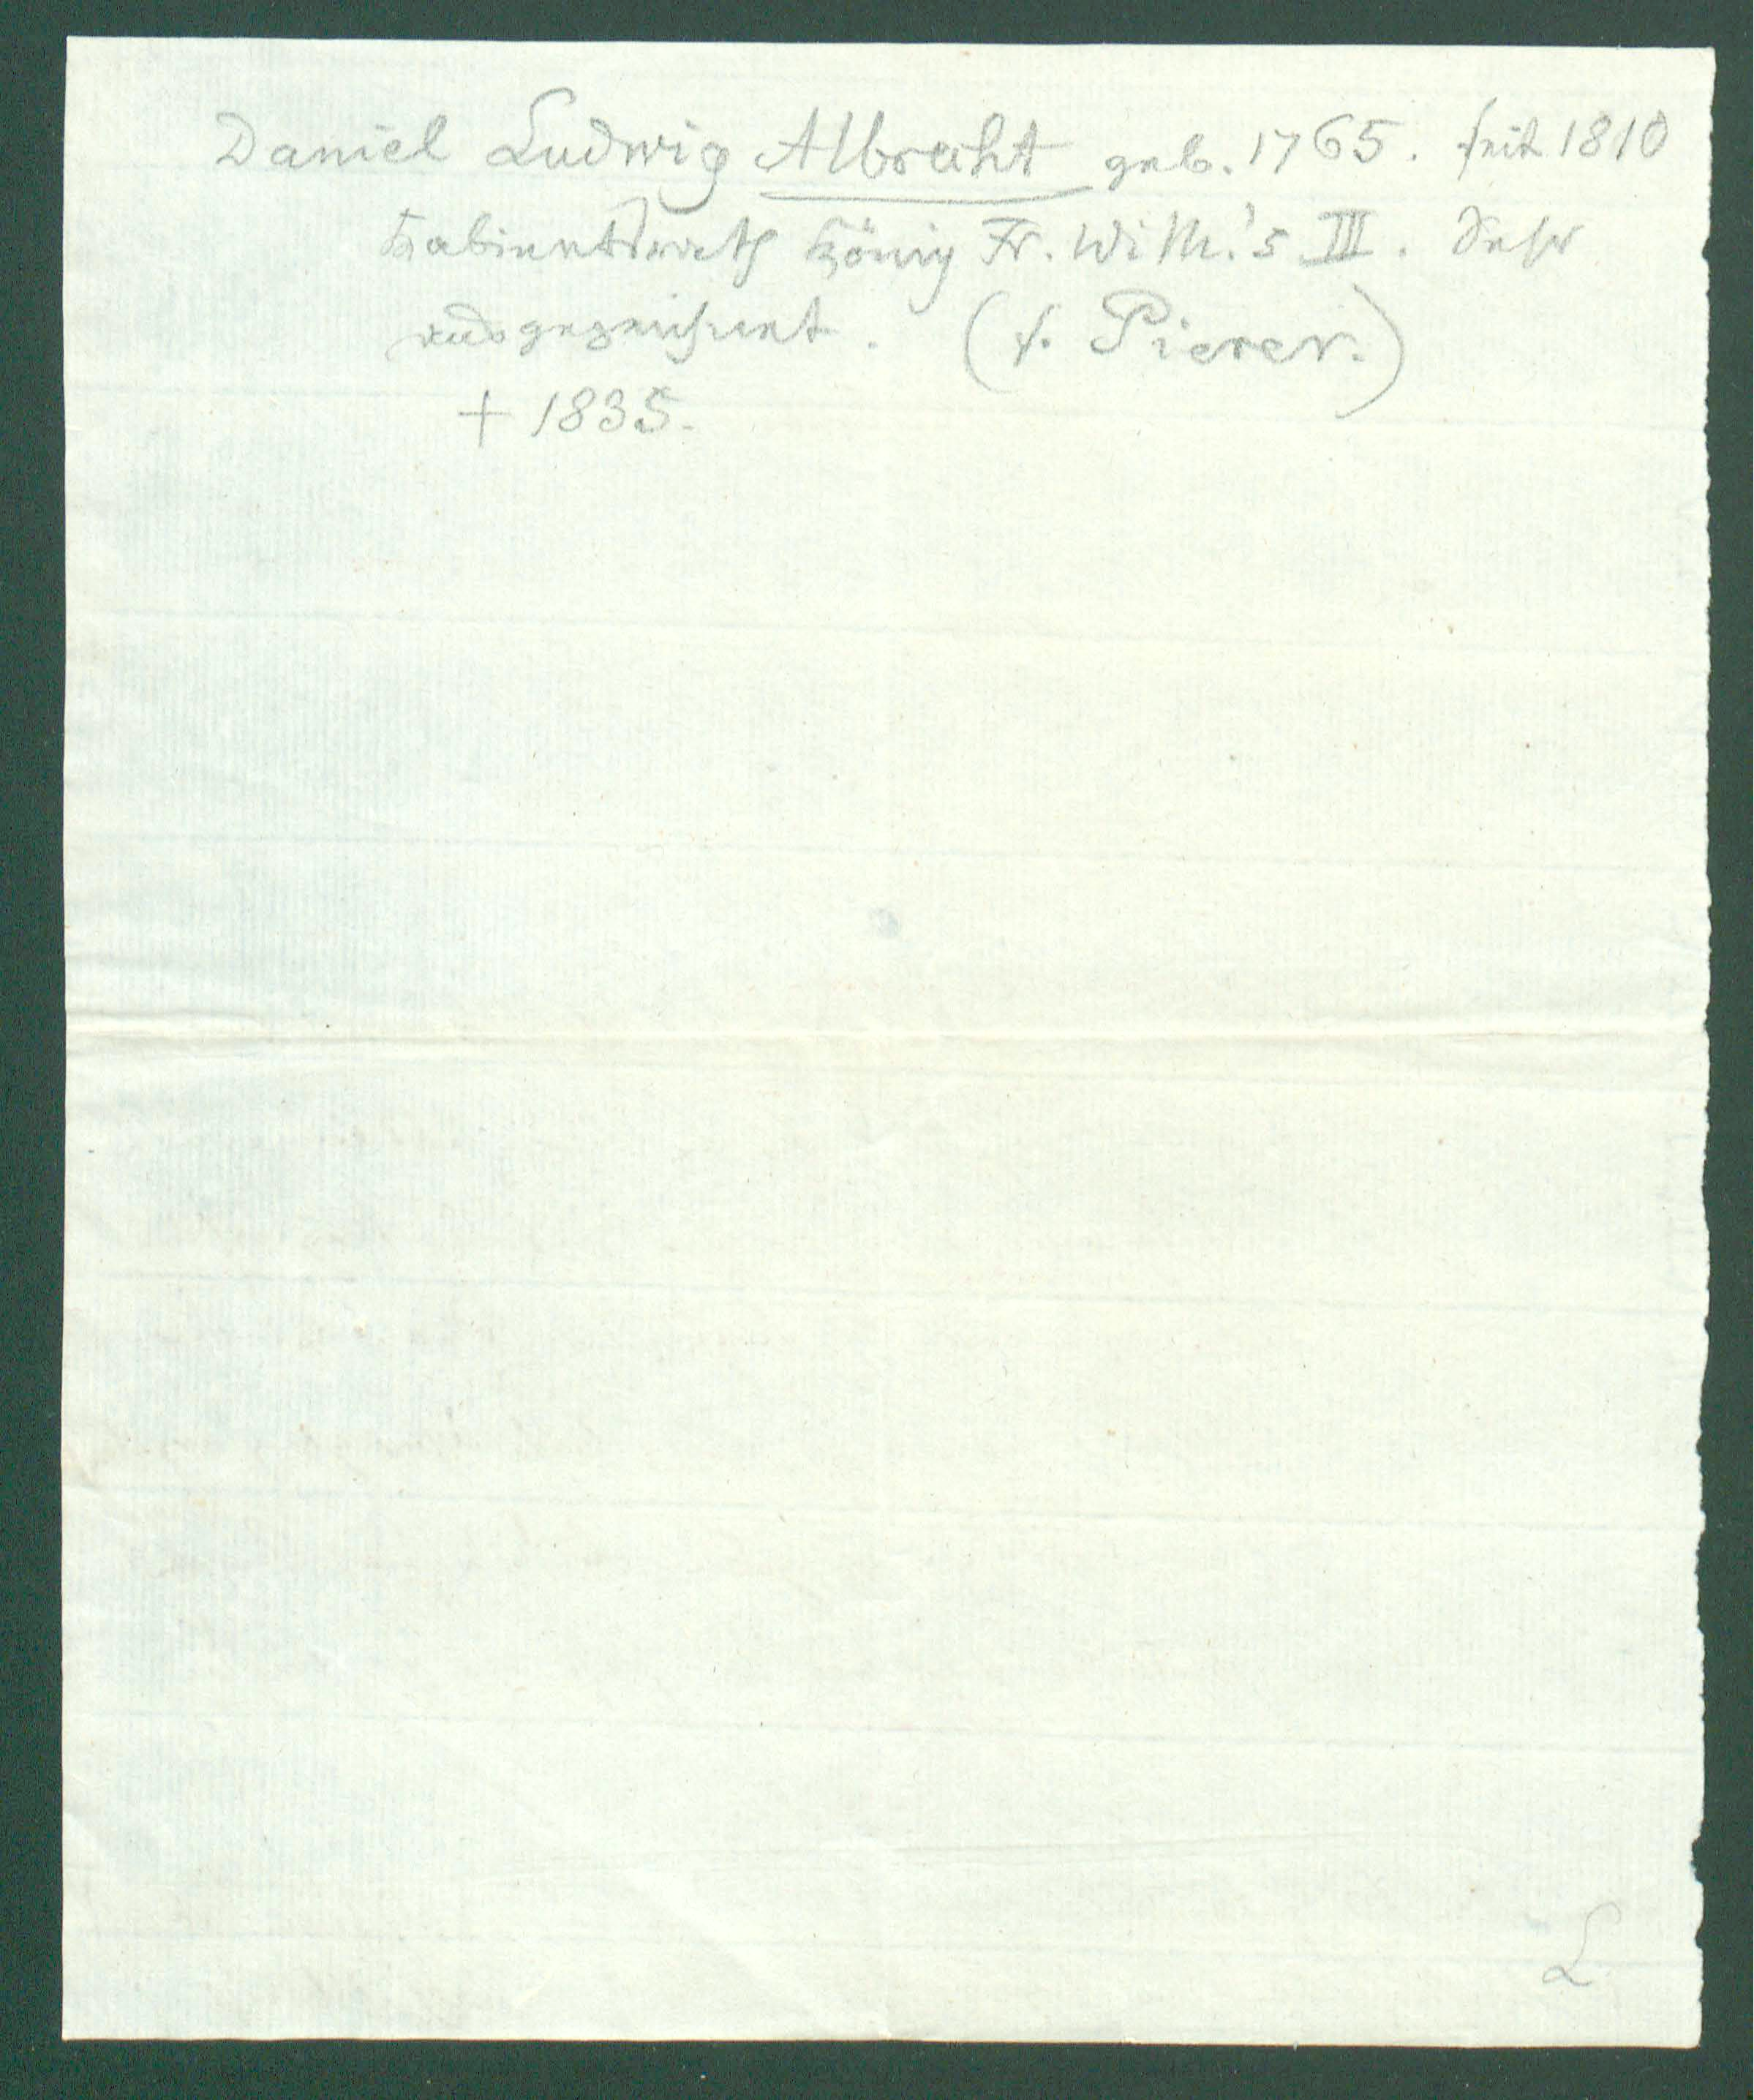 Daniel Ludwig Albrecht geb. 1765. seit 1810
Kabinetsrath König Fr. Wilh.'s III. Sehr
ausgezeichnet. (s. Pierer.)
† 1835.
L